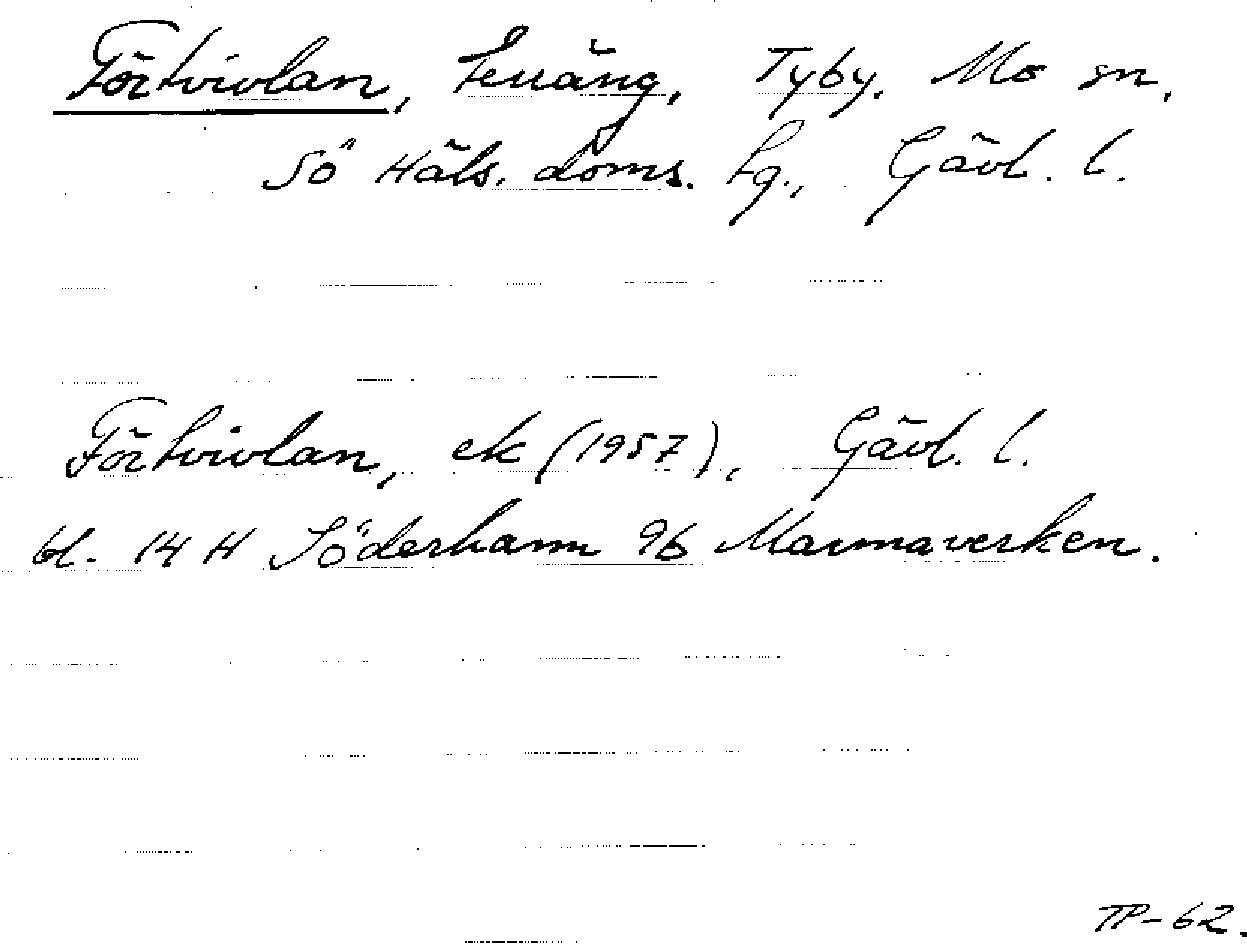 Förtvivlan, teräng, Tyby. Mo sn.
Sö Häls. doms. Lg., Gävl. l.
Förtvivlan, ek (1957), Gävl. l.
bl. 14 H Söderhamn 9b Marmaverken.
TP-62.